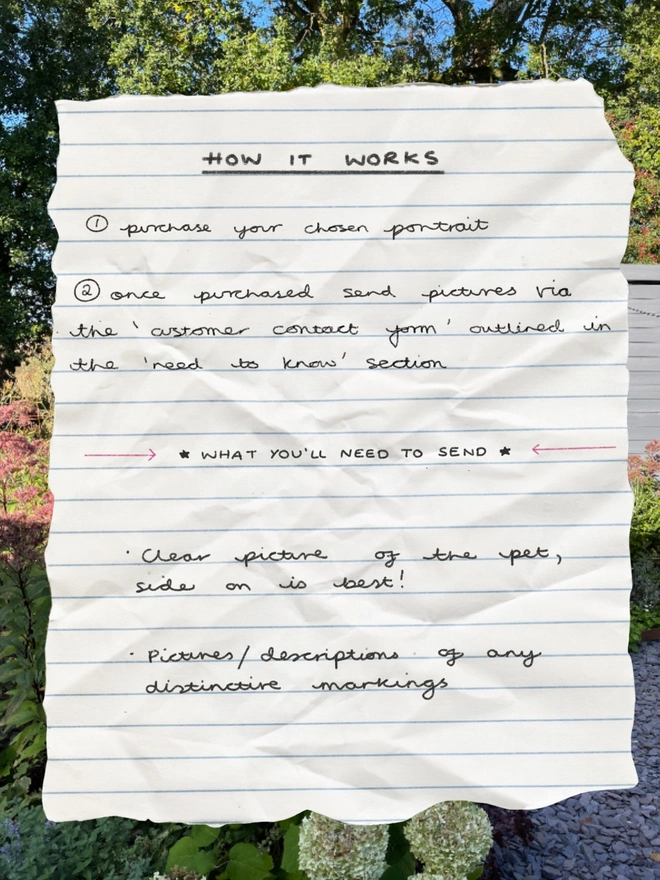 HOW IT WORKS
① purchase your chosen portrait
② once purchased send pictures via
the 'customer contact form' outlined in
the 'need to know' section
→ ★ WHAT YOU'LL NEED TO SEND ★ ←
· Clear picture of the pet,
side on is best!
· Pictures/descriptions of any
distinctive markings